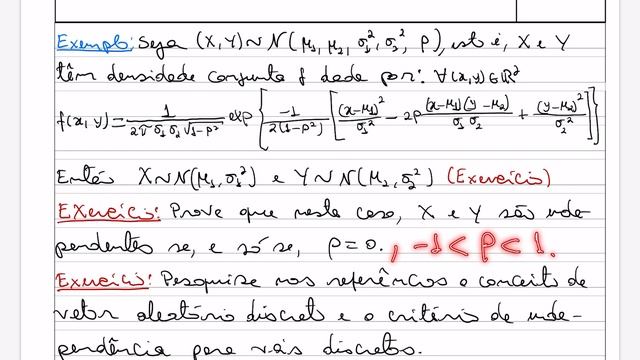 Exemplo: Seja (X,Y)~N(μ₁, μ₂, σ₁², σ₂², ρ), isto é, X e Y
têm densidade conjunta f dada por: ∀(x,y)∈ℝ²
f(x,y)=1/(2π σ₁ σ₂ √(1-ρ²)) exp{-1/(2(1-ρ²)) [(x-μ₁)²/σ₁² - 2ρ (x-μ₁)(y-μ₂)/(σ₁ σ₂) + (y-μ₂)²/σ₂²]}
Então X~N(μ₁,σ₁²) e Y~N(μ₂,σ₂²) (Exercício)
Exercício: Prove que neste caso, X e Y são inde
pendentes se, e só se, ρ=0. , -1<ρ<1.
Exercício: Pesquise nas referências o conceito de
vetor aleatório discreto e o critério de inde-
pendência para va's discretas.